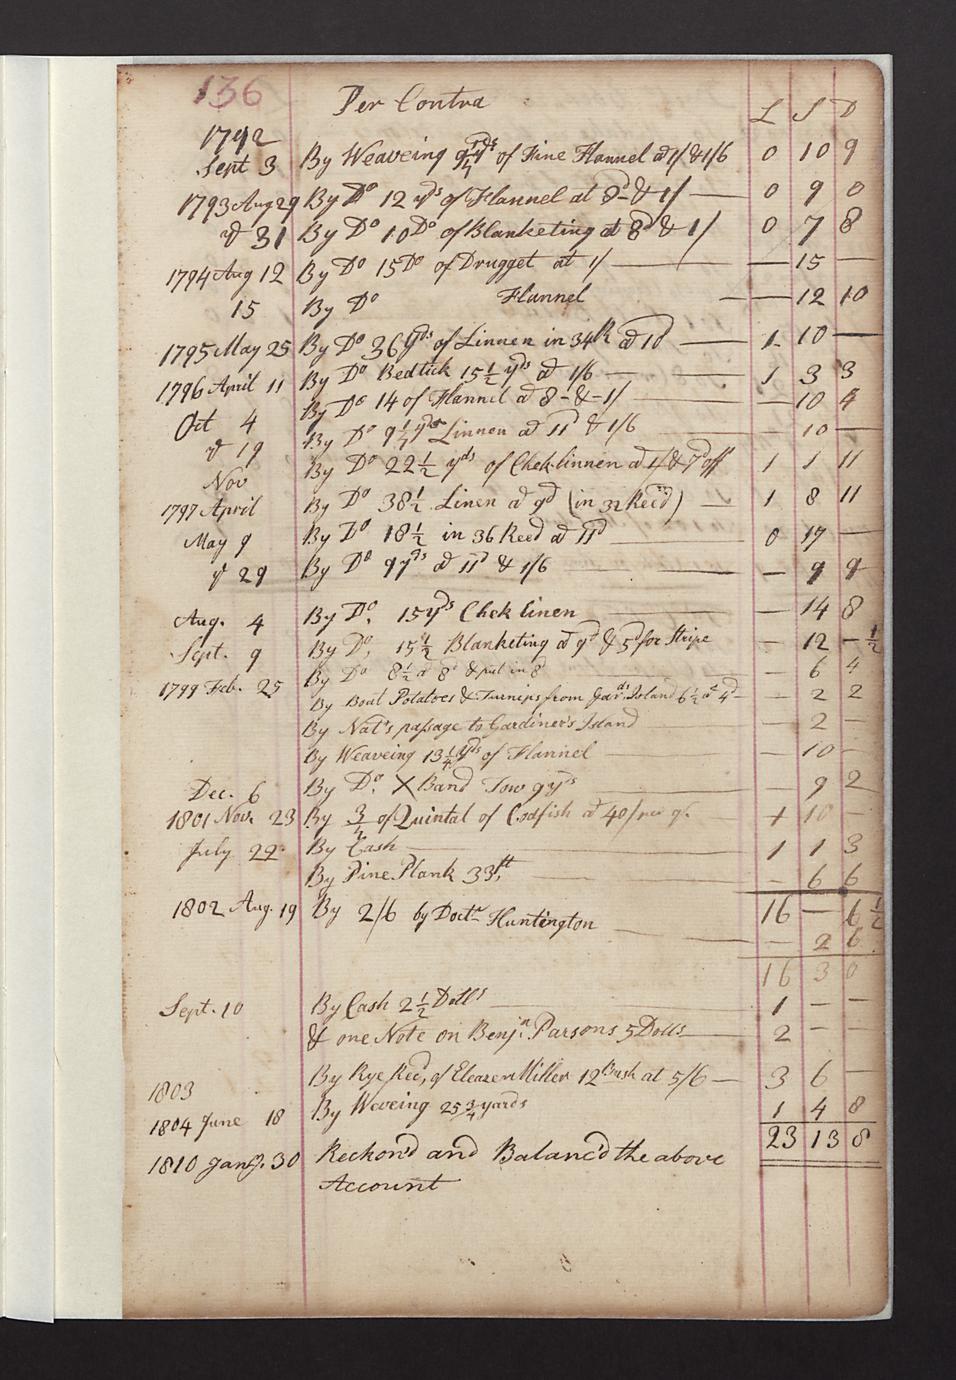 136 Per Contra L S D
1792
Sept 3 By Weaveing 9 1/4 yds of Fine Flannel at 1/ & 1/6 0 10 9
1793 Aug 29 By Do 12 yds of Flannel at 8d & 1/ — 0 9 0
31 By Do 10 Do of Blanketing at 8d & 1/ 0 7 8
1794 Aug 12 By Do 15 Do of Drugget at 1/ — — 15 —
15 By Do Flannel — — 12 10
1795 May 25 By Do 36 yds of Linnen in 34 R at 10d — 1 10 —
1796 April 11 By Do Bedtick 15 1/2 yds at 1/6 — 1 3 3
By Do 14 of Flannel at 8- & -1/ — — 10 4
Oct 4 By Do 9 1/4 yds Linnen at 11d & 1/6 — 10 —
19
Nov By Do 22 1/2 yds of Chek linnen at 1/ & 7d off 1 1 11
1797 April By Do 38 1/2 Linen at 9d (in 32 Reed) — 1 8 11
May 9 By Do 18 1/2 in 36 Reed at 11d — 0 17 —
29 By Do 9 yds at 11d & 1/6 — — 9 9
Aug. 4 By Do. 15 yds Chek linen — — 14 8
Sept. 9 By Do, 15 1/2 Blanketing at 9d & 5d for Stripe — 12 - 1/2
By Do 8 1/2 at 8d & put in 8 — 6 4
1799 Feb. 25 By Boat Potatoes & Turnips from Gardrs Island 6 1/2 at 4d — — 2 2
By Nat's passage to Gardiner's Island — — 2 —
By Weaveing 13 1/4 yds of Flannel — — 10 —
Dec. 6 By Do. X Band Tow 9 yds — — 9 2
1801 Nov. 23 By 3/4 of Quintal of Codfish at 40/ per q. 1 10 —
July 22 By Cash — 1 1 3
By Pine Plank 33 ft, — — 6 6
1802 Aug. 19 By 2/6 by Doctr Huntington 16 — 6 1/2
— — 2 6
16 3 0
Sept. 10 By Cash 2 1/2 Dolls — 1 — —
& one Note on Benjn. Parsons 5 Dolls — 2 — —
1803 By Rye Recd, of Eleazer Miller 12 Bush at 5/6 — 3 6 —
1804 June 18 By Weveing 25 3/4 yards 1 4 8
23 13 8
1810 Jany. 30 Reckon'd and Balanc'd the above
Account